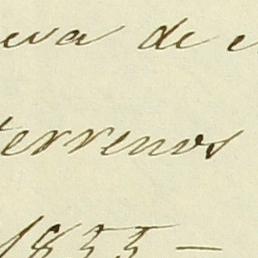 eva de
terrenos
1855 —